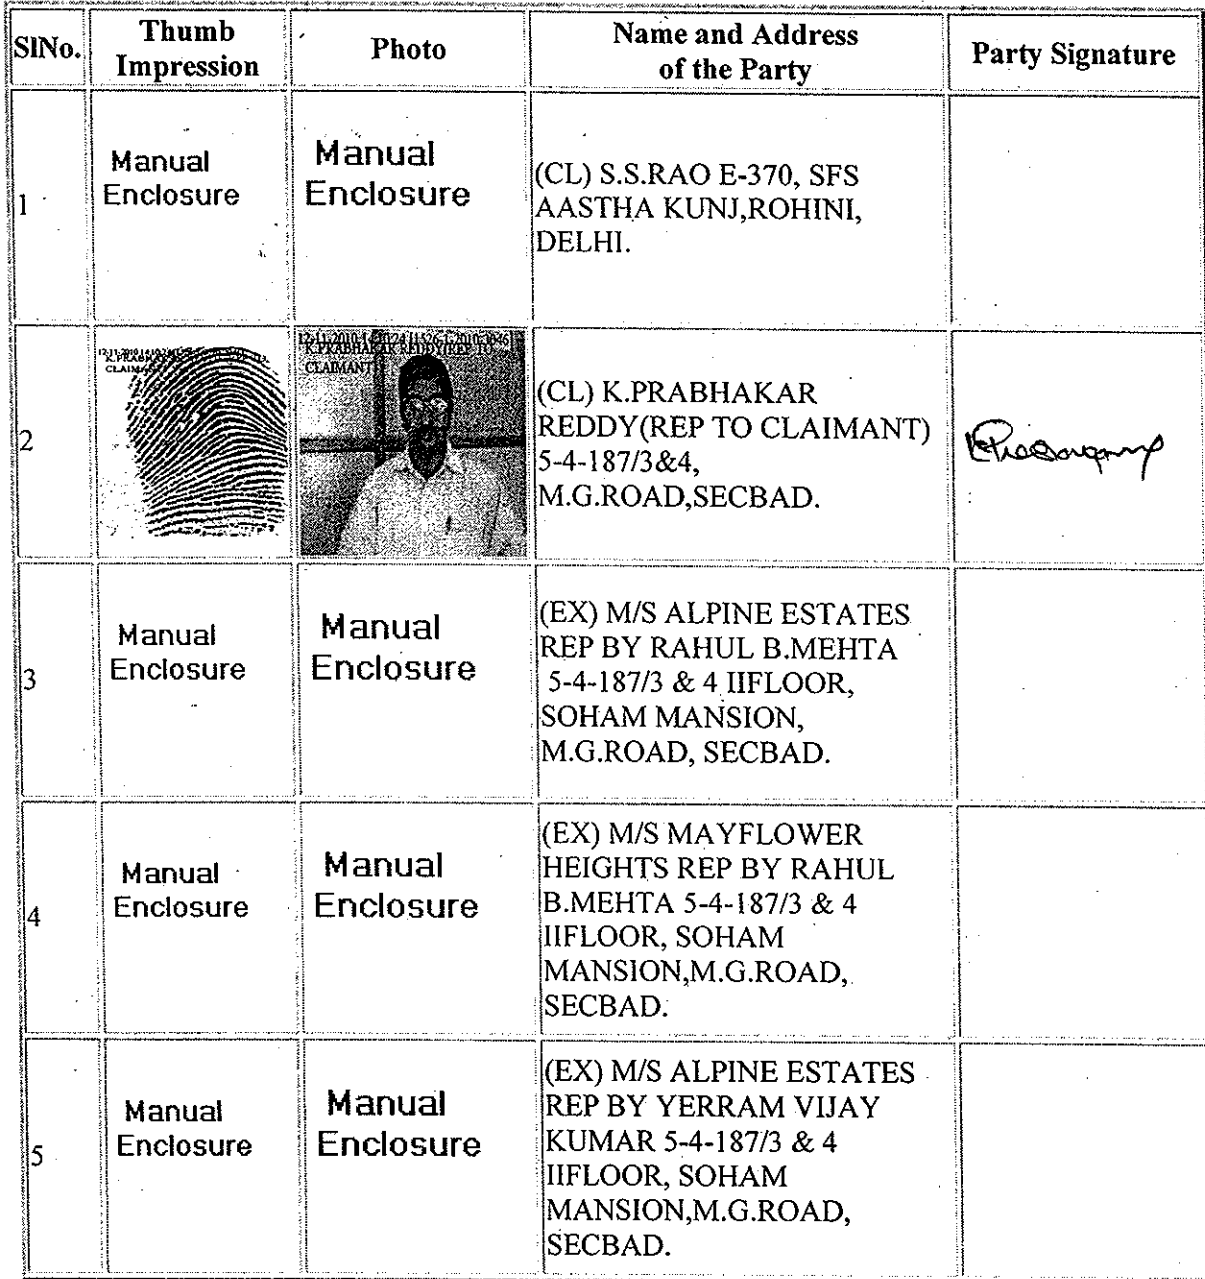 SlNo.
Thumb
Impression
Photo
Name and Address
of the Party
Party Signature
1
Manual
Enclosure
Manual
Enclosure
(CL) S.S.RAO E-370, SFS
AASTHA KUNJ,ROHINI,
DELHI.
2
CLAIMANT)
K.PRABHAKAR REDDY(REP TO
CLAIMANT)
(CL) K.PRABHAKAR
REDDY(REP TO CLAIMANT)
5-4-187/3&4,
M.G.ROAD,SECBAD.
3
Manual
Enclosure
Manual
Enclosure
(EX) M/S ALPINE ESTATES
REP BY RAHUL B.MEHTA
5-4-187/3 & 4 IIFLOOR,
SOHAM MANSION,
M.G.ROAD, SECBAD.
4
Manual
Enclosure
Manual
Enclosure
(EX) M/S MAYFLOWER
HEIGHTS REP BY RAHUL
B.MEHTA 5-4-187/3 & 4
IIFLOOR, SOHAM
MANSION,M.G.ROAD,
SECBAD.
5
Manual
Enclosure
Manual
Enclosure
(EX) M/S ALPINE ESTATES
REP BY YERRAM VIJAY
KUMAR 5-4-187/3 & 4
IIFLOOR, SOHAM
MANSION,M.G.ROAD,
SECBAD.